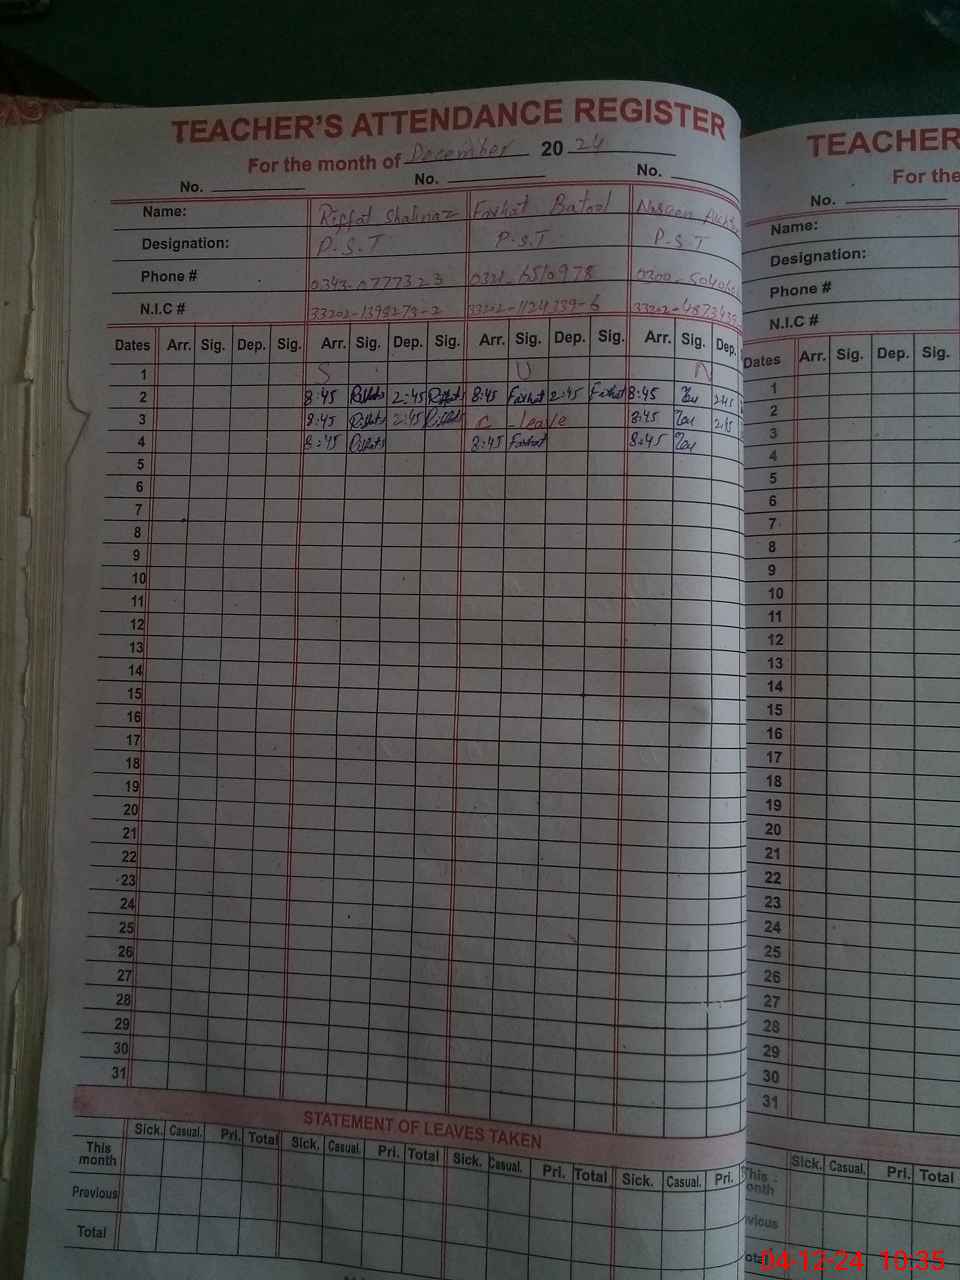 TEACHER'S ATTENDANCE REGISTER
For the month of December 20 24
No. No. No.
Name: Riffat Shahnaz Farhat Batool
Designation: P.S.T P.S.T P.S.T
Phone #
N.I.C #
Dates Arr. Sig. Dep. Sig. Arr. Sig. Dep. Sig. Arr. Sig. Dep. Sig. Arr. Sig. Dep.
1 S U N
2 8:45 2:45 8:45 Farhat 2:45 Farhat 8:45 2:45
3 8:45 2:45 C - leave 8:45 2:45
4 8:45 8:45 Farhat 8:45
5
6
7
8
9
10
11
12
13
14
15
16
17
18
19
20
21
22
23
24
25
26
27
28
29
30
31
STATEMENT OF LEAVES TAKEN
Sick. Casual. Pri. Total Sick. Casual. Pri. Total Sick. Casual. Pri. Total Sick. Casual. Pri.
This month
Previous
Total
TEACHER
For the
No.
Name:
Designation:
Phone #
N.I.C #
Dates Arr. Sig. Dep. Sig.
1
2
3
4
5
6
7
8
9
10
11
12
13
14
15
16
17
18
19
20
21
22
23
24
25
26
27
28
29
30
31
Sick. Casual. Pri. Total
04-12-24 10:35